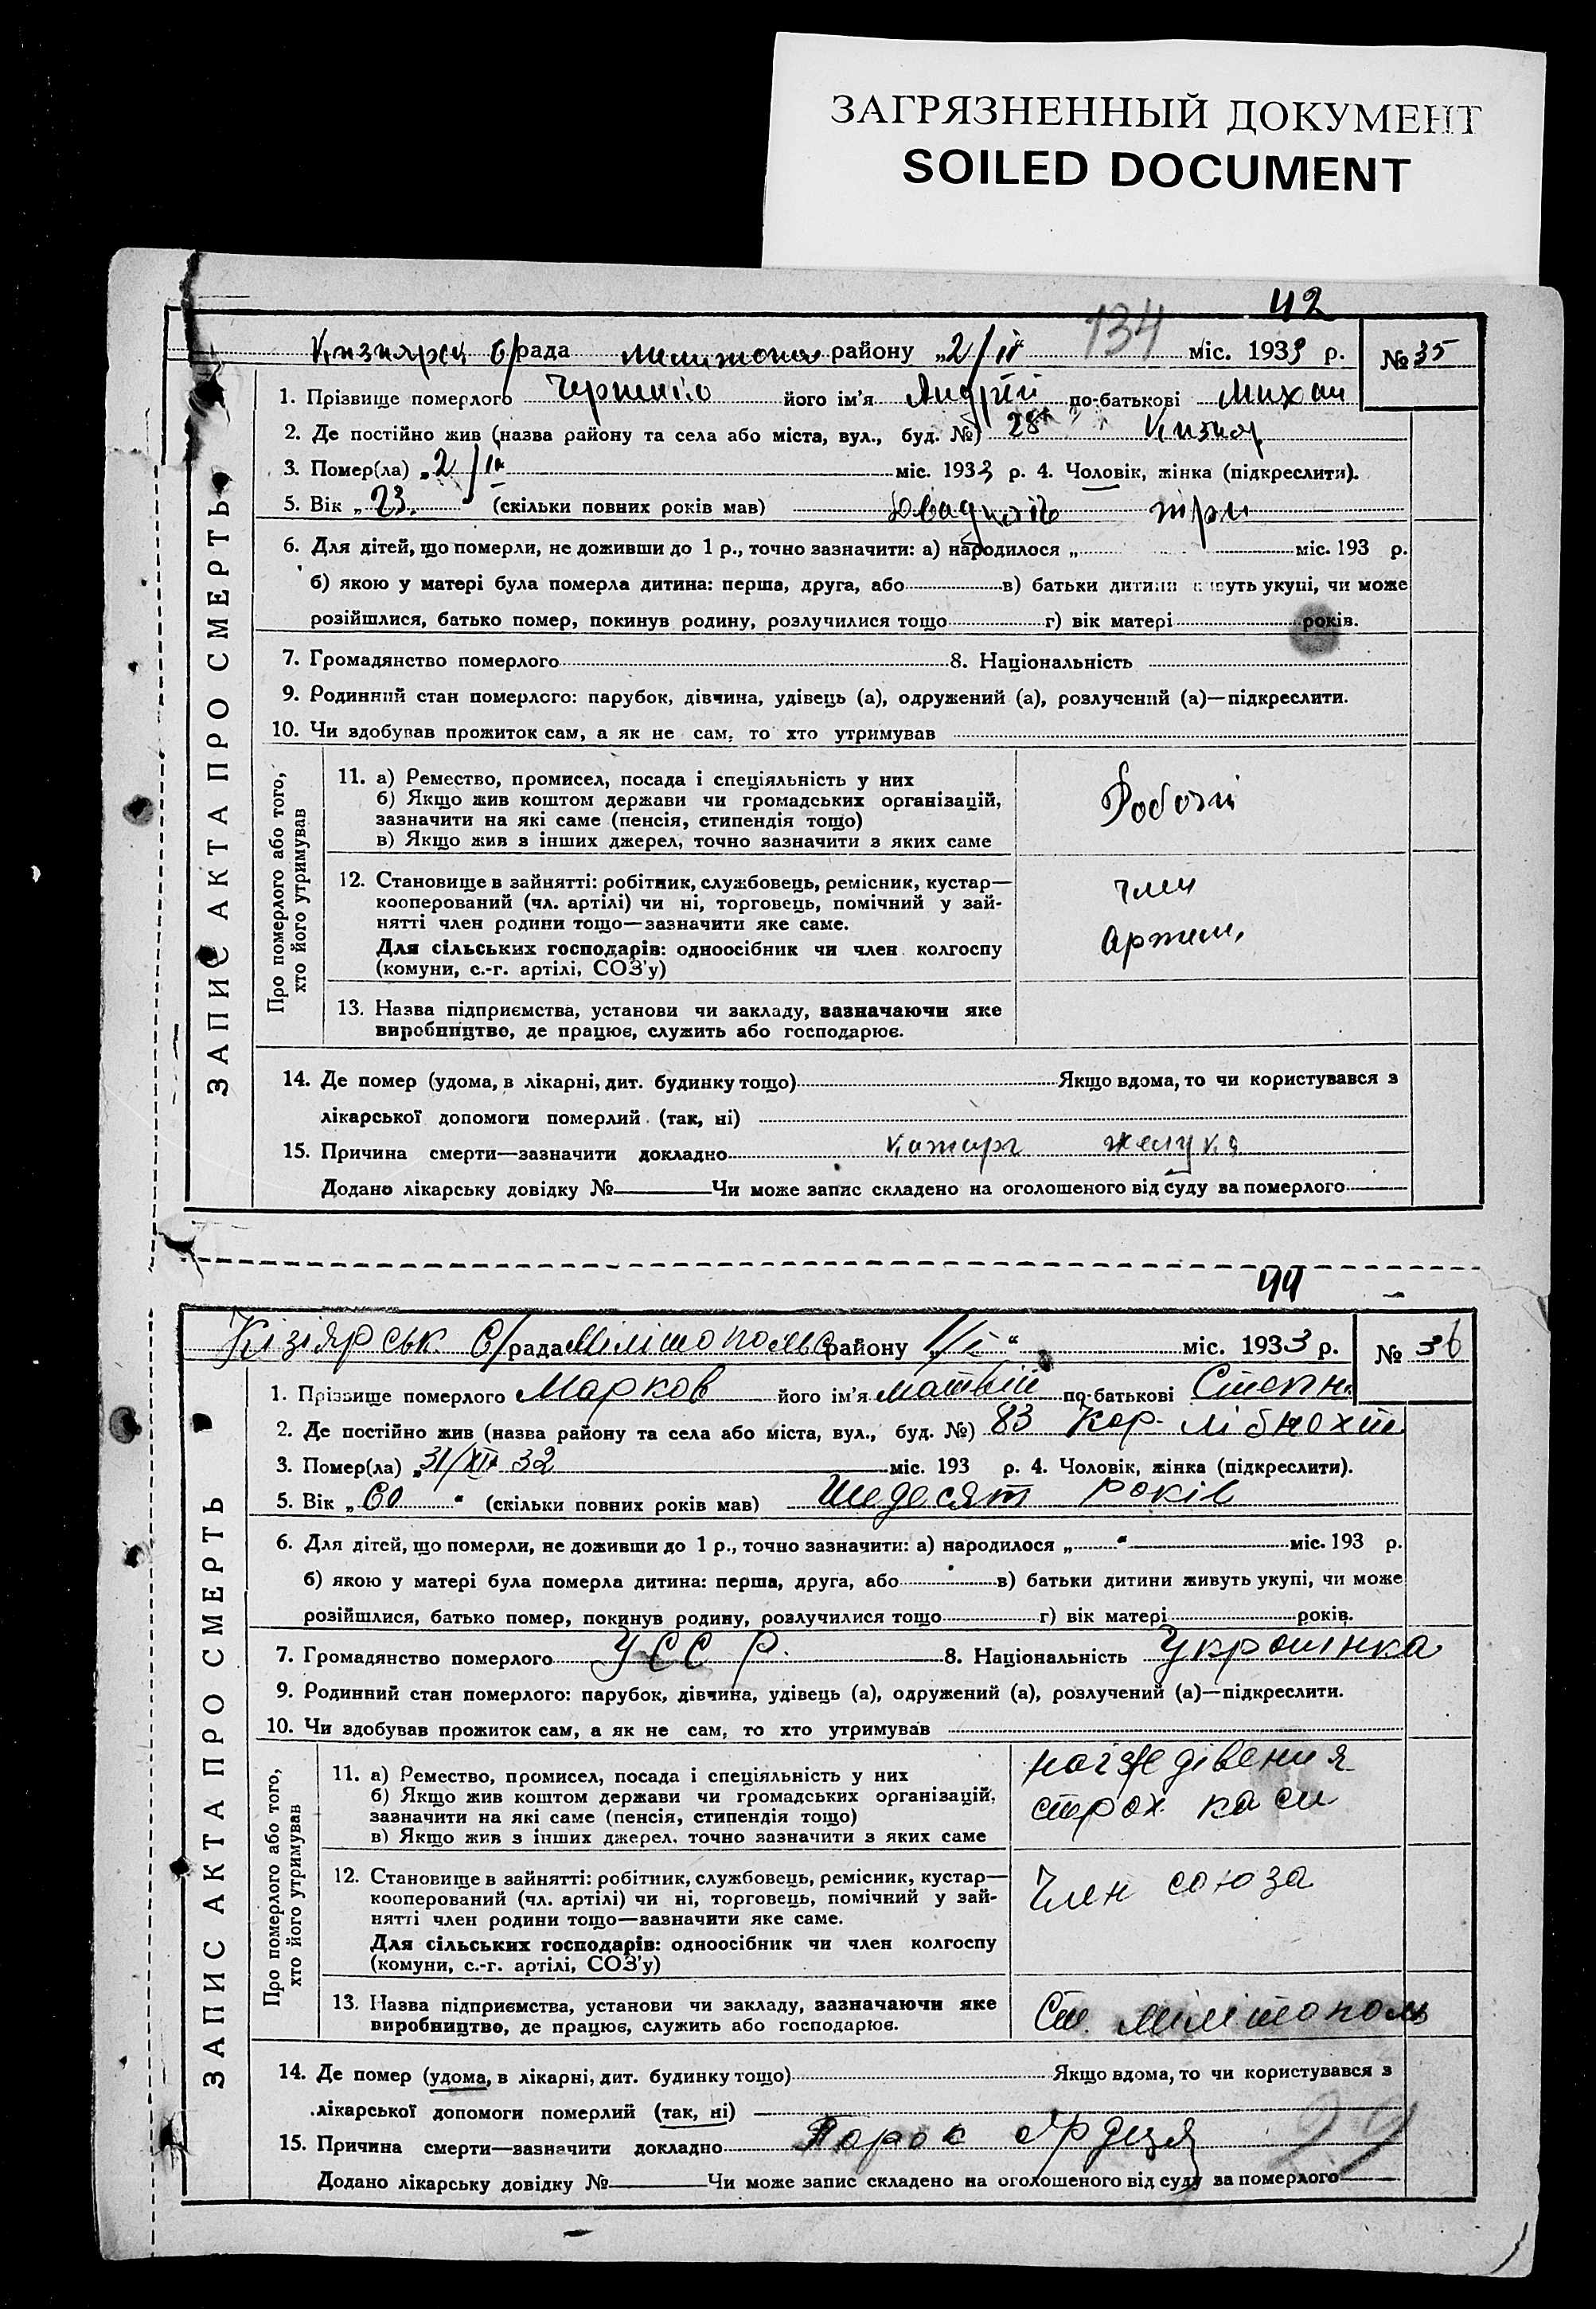 ЗАГРЯЗНЕННЫЙ ДОКУМЕНТ
SOILED DOCUMENT
42
134
с/рада району „2/II міс. 1933 р. № 35
1. Прізвище померлого його ім'я Андрій по-батькові Михай
2. Де постійно жив (назва району та села або міста, вул., буд. №) 28 Кизияр
3. Помер(ла) „2/II міс. 1933 р. 4. Чоловік, жінка (підкреслити).
5. Вік „23." (скільки повних років мав) Двадцять три
6. Для дітей, що померли, не доживши до 1 р., точно зазначити: а) народилося „ міс. 193 р.
б) якою у матері була померла дитина: перша, друга, або в) батьки дитини живуть укупі, чи може
розійшлися, батько помер, покинув родину, розлучилися тощо г) вік матері років.
7. Громадянство померлого 8. Національність
9. Родинний стан померлого: парубок, дівчина, удівець (а), одружений (а), розлучений (а)—підкреслити.
10. Чи здобував прожиток сам, а як не сам, то хто утримував
ЗАПИС АКТА ПРО СМЕРТЬ
Про померлого або того,
хто його утримував
11. а) Ремество, промисел, посада і спеціяльність у них
б) Якщо жив коштом держави чи громадських організацій,
зазначити на які саме (пенсія, стипендія тощо)
в) Якщо жив з інших джерел, точно зазначити з яких саме
Робочи
12. Становище в зайнятті: робітник, службовець, ремісник, кустар—
кооперований (чл. артілі) чи ні, торговець, помічний у зай-
нятті член родини тощо—зазначити яке саме.
Для сільських господарів: одноосібник чи член колгоспу
(комуни, с.-г. артілі, СОЗ'у)
член
Артели
13. Назва підприємства, установи чи закладу, зазначаючи яке
виробництво, де працює, служить або господарює.
14. Де помер (удома, в лікарні, дит. будинку тощо) Якщо вдома, то чи користувався з
лікарської допомоги померлий (так, ні)
15. Причина смерти—зазначити докладно катарг желудка
Додано лікарську довідку № Чи може запис складено на оголошеного від суду за померлого
44
Кізіярськ. С/рада Мілітопольс району „1/I" міс. 1933 р. № 36
1. Прізвище померлого Марков його ім'я Матвій по-батькові Степан.
2. Де постійно жив (назва району та села або міста, вул., буд. №) 83 Кар- Лібнехт
3. Помер(ла) „31/XII 32 міс. 193 р. 4. Чоловік, жінка (підкреслити).
5. Вік „60" (скільки повних років мав) Шедесят років
6. Для дітей, що померли, не доживши до 1 р., точно зазначити: а) народилося „ " міс. 193 р.
б) якою у матері була померла дитина: перша, друга, або в) батьки дитини живуть укупі, чи може
розійшлися, батько помер, покинув родину, розлучилися тощо г) вік матері років.
7. Громадянство померлого УССР. 8. Національність Украінка
9. Родинний стан померлого: парубок, дівчина, удівець (а), одружений (а), розлучений (а)—підкреслити.
10. Чи здобував прожиток сам, а як не сам, то хто утримував
ЗАПИС АКТА ПРО СМЕРТЬ
Про померлого або того,
хто його утримував
11. а) Ремество, промисел, посада і спеціяльність у них
б) Якщо жив коштом держави чи громадських організацій,
зазначити на які саме (пенсія, стипендія тощо)
в) Якщо жив з інших джерел, точно зазначити з яких саме
на іждівения
страх. каси
12. Становище в зайнятті: робітник, службовець, ремісник, кустар—
кооперований (чл. артілі) чи ні, торговець, помічний у зай-
нятті член родини тощо—зазначити яке саме.
Для сільських господарів: одноосібник чи член колгоспу
(комуни, с.-г. артілі, СОЗ'у)
Член союза
13. Назва підприємства, установи чи закладу, зазначаючи яке
виробництво, де працює, служить або господарює.
Ст. Мілітополь
14. Де помер (удома, в лікарні, дит. будинку тощо) Якщо вдома, то чи користувався з
лікарської допомоги померлий (так, ні)
15. Причина смерти—зазначити докладно Порок
Додано лікарську довідку № Чи може запис складено на оголошеного від суду за померлого
29